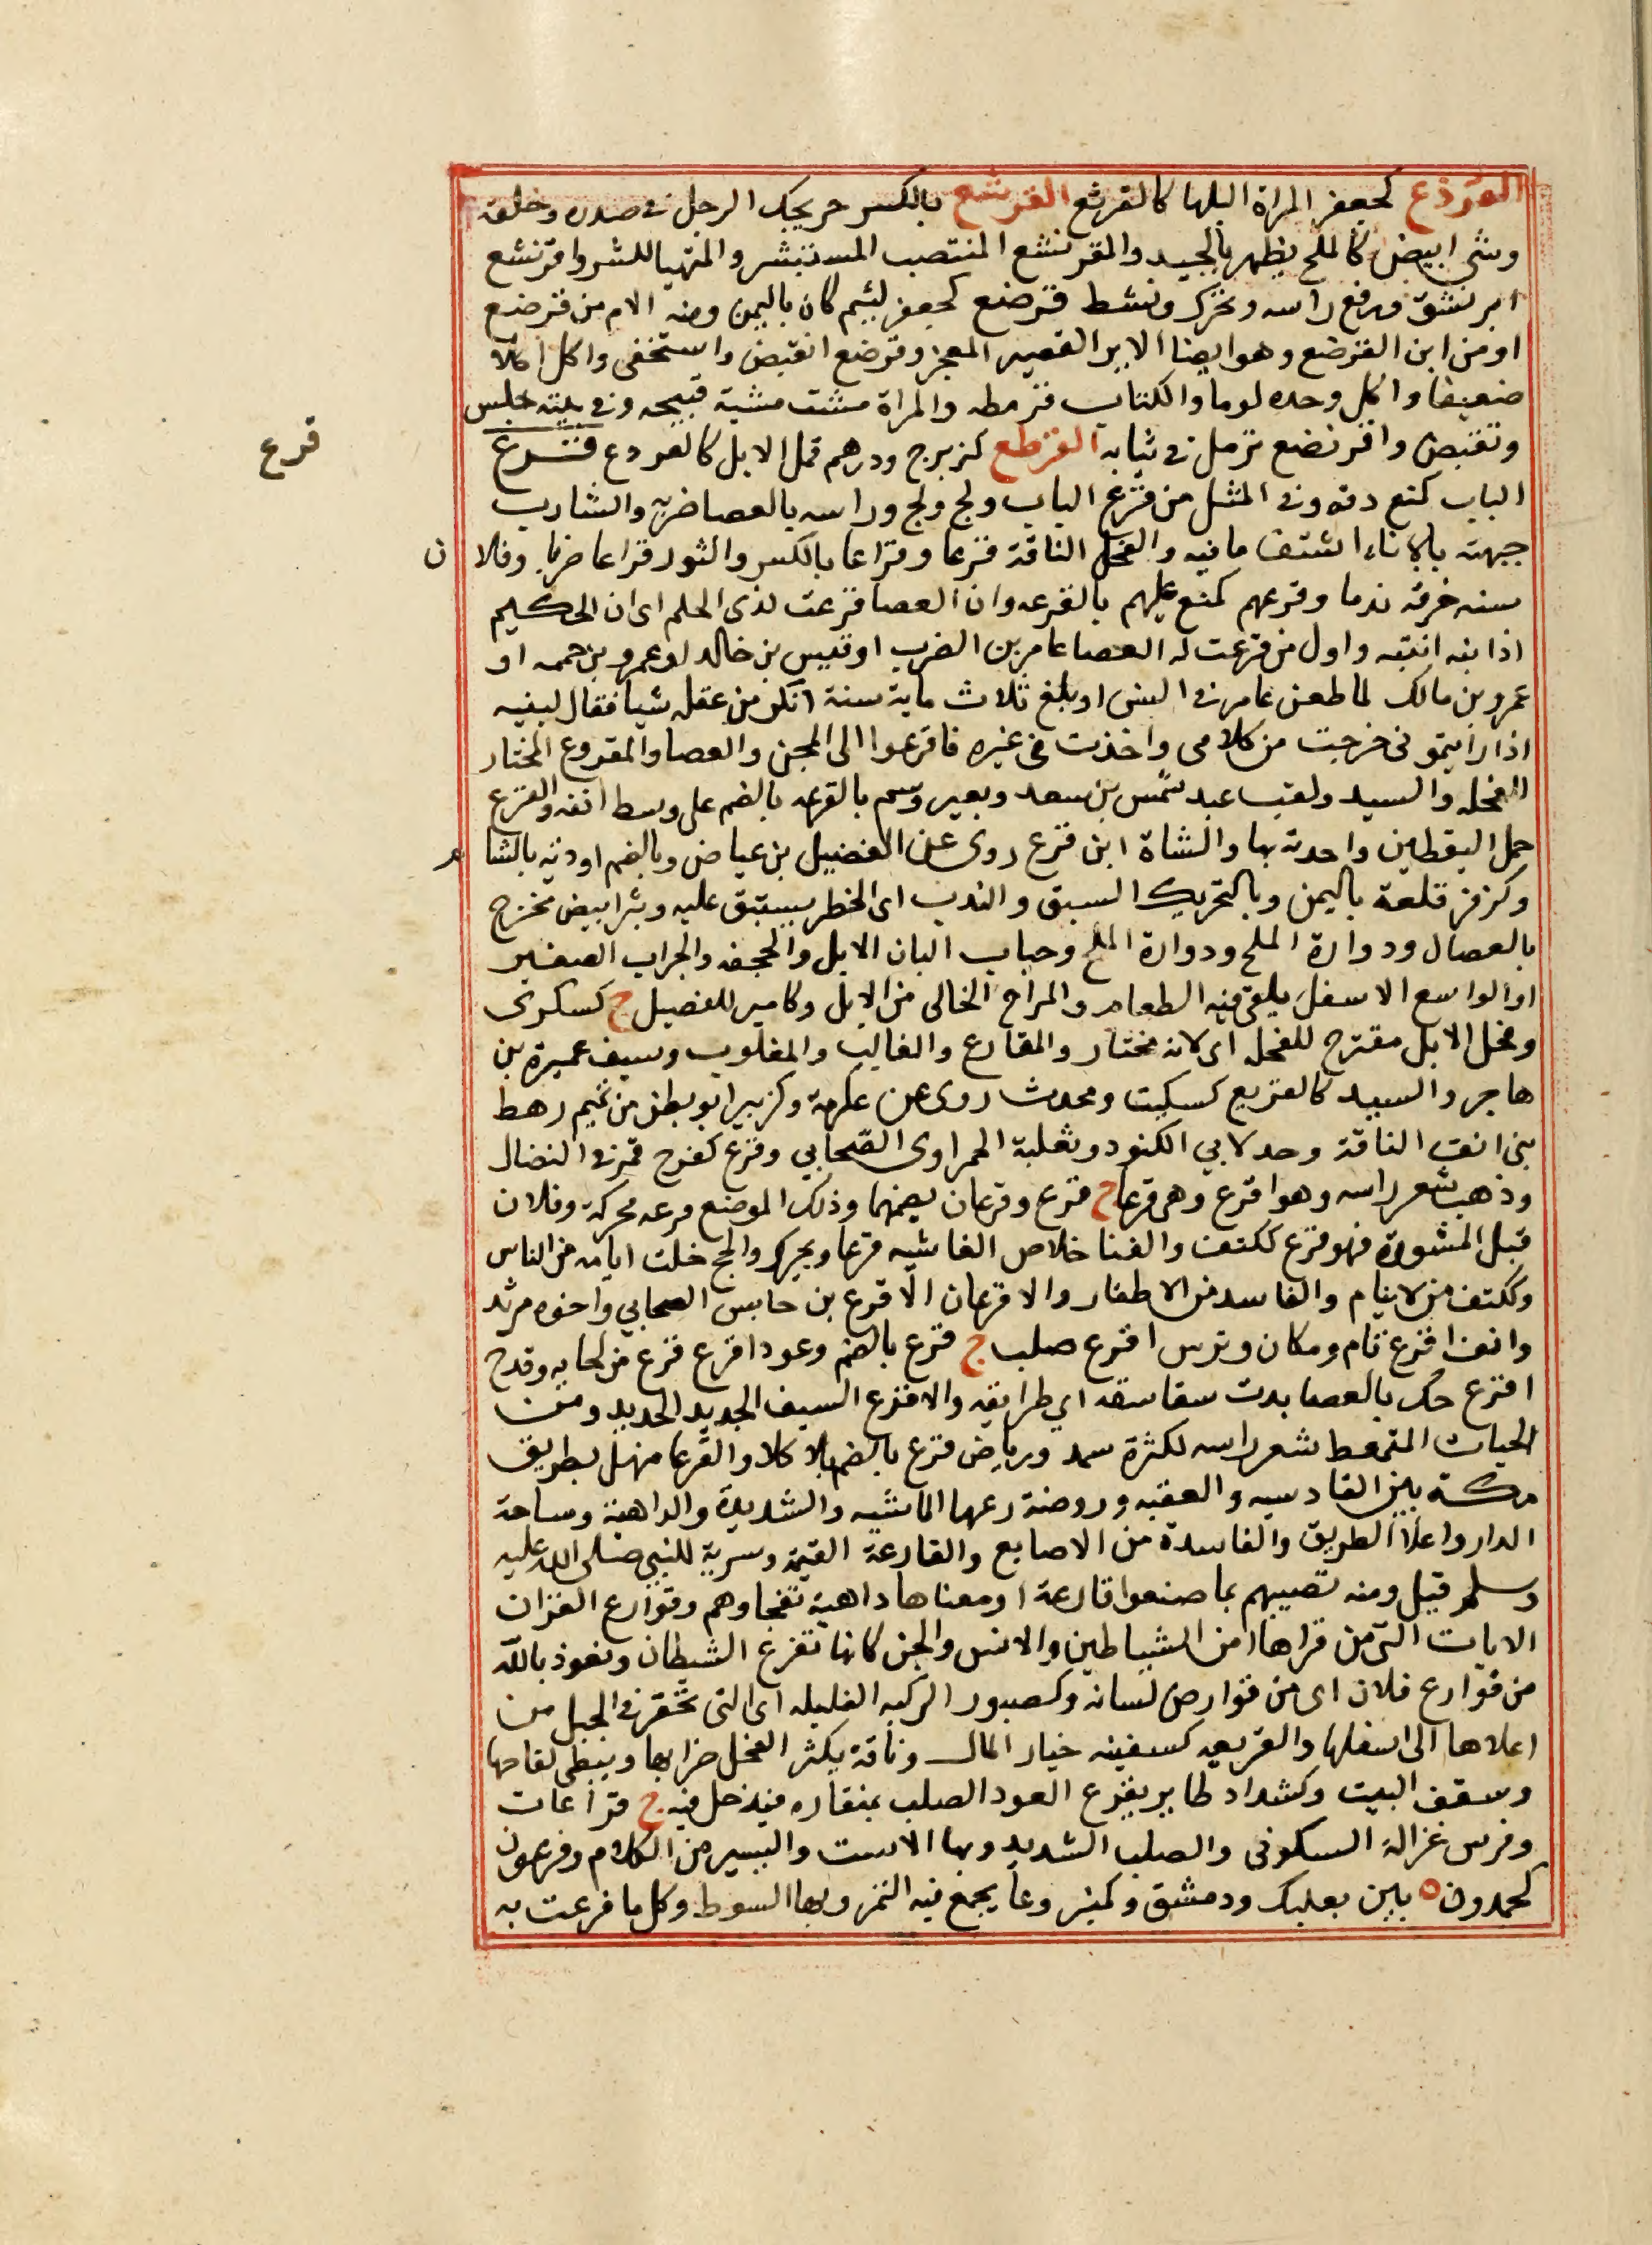 القرذع كجعفر المراة البلها كالقرثع القرشع بالكسر حر يجك الرجل في صدره وحلقه
وشى ابيض كالملح يظهر بالجسد والمقرنشع المنتصب المستبشر والمتهيا للشر واقرنشع
ابرنشق ورفع راسه وتحرك ونشط قرضع كجعفر لئيم كان باليمن ومنه الام من قرضع
او من ابن القرضع وهو ايضا الاير القصير المعجر وقرضع انقبض واستخفى واكل اكلا
ضعيفا واكل وحده لوما والكتاب قرمطه والمراة مشت مشية قبيحه وفي بيته جلس
وتقبض واقرنضع تزمل في ثيابه القرطع كزبرج ودرهم قمل الابل كالقردع قـرع
قرع
الباب كنع دقه وفي المثل من قرع الباب ولج ولج وراسه بالعصا ضربه والشارب
جبهته بالاناء اشتف ما فيه والفحل الناقة قرعا وقراعا بالكسر والثور قراعا ضربا وفلا ن
سنه خرقه ندما وقرعهم كمنع عليهم بالقرعه وان العصا قرعت لذى الحلم اى ان الحكيم
اذا نبه انتبه واول من قرعت له العصا عامر بن الضرب او قيس بن خالد او عمرو بن حممه او
عمرو بن مالك لما طعن عامر في السن او بلغ ثلاث ماية سنة انكر من عقله شيا فقال لبنيه
اذا رايتمونى خرجت من كلامى واخذت في غيره فاقرعوا الى المجن والعصا والمقروع المختار
للفحله والسيد ولقب عبد شمس بن سعد وبعير وسم بالقرعه بالضم على وسط انفه والقرع
حمل اليقطين واحدته بها والشاة ابن قرع روى عن الفضيل بن عياض وبالضم اودية بالشا م
وكزفر قلعة باليمن وبالتحريك السبق والندب اى الخطر يستبق عليه وبثر ابيض يخرج
بالفصال ودوارة الملح ودوارة الملح وحباب البان الابل والحجفه والجراب الصغير
او الواسع الاسفل يلقى فيه الطعام والمراح الخالى من الابل وكامير للفصيل ج كسكرى
وفحل الابل مقترح للفحله اى لانه مختار والمقارع والغالب والمغلوب وسيف عميرة بن
هاجر والسيد كالقريع كسكيت ومحدث روى عن عكرمة وكزبير ابو بطن من تميم رهط
بنى انف الناقة وجد لابي الكنود وثعلبة الحمراوى الصحابي وقرع كفرح قمر في النضال
وذهب شعر راسه وهو اقرع وهى قرعا ج قرع وقرعان بضمهما وذلك الموضع قرعه محركة وفلان
قبل المشورة فهو قرع ككتف والفنا خلاص الغاشيه قرعا ويحرك والحج خلت ايامه من الناس
وككتف من لا ينام والفاسد من الاظفار والاقرعان الاقرع بن حابس الصحابي واخوه مرثد
والف اقرع تام ومكان وترس اقرع صلب ج قرع بالضم وعود اقرع قرع من لحايه وقدح
اقرع حك بالعصا بدت سفاسقه اي طرايقه والاقرع السيف الجيد الحديد ومن
الحيات المتمعط شعر راسه لكثرة سمه ورياض قرع بالضم بلا كلا والقرعا منهل بطريق
مكة بين القادسيه والعقبه وروضة رعها الماشيه والشديدة والداهية وساحة
الدار واعلا الطريق والفاسدة من الاصابع والقارعة القيمة وسرية للنبي صلى الله عليه
وسلم قيل ومنه تصيبهم بما صنعوا قارعة او معناها داهية تفجاوهم وقوارع القران
الايات التى من قراها امن الشياطين والانس والجن كانها تقرع الشيطان ونعوذ بالله
من قوارع فلان اى من قوارص لسانه وكصبور الركيه القليله اى التى تحقر في الجبل من
اعلاها الى اسفلها والقريعه كسفينه خيار المال وناقة يكثر الفحل ضرابها ويبطى لقاحها
وسقف البيت وكشداد طاير يقرع العود الصلب بمنقاره فيدخل فيه ج قراعات
وفرس غزالة السكونى والصلب الشديد وبها الاست واليسير من الكلام وقرعون
كحمدون ه بين بعلبك ودمشق وكمنبر وعا يجمع فيه التمر وبها السوط وكل ما قرعت به